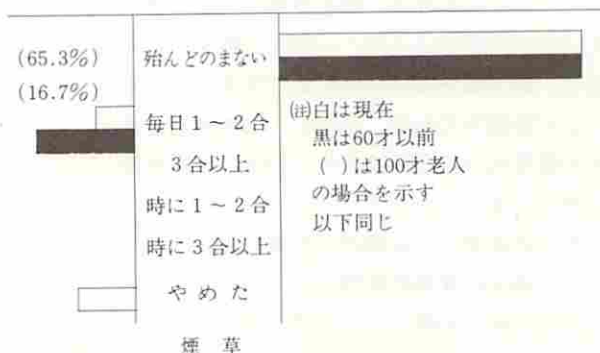 (65.3%)
殆んどのまない
(16.7%)
毎日1～2合
3合以上
時に1～2合
時に3合以上
やめた
(注)白は現在
黒は60才以前
( )は100才老人
の場合を示す
以下同じ
煙草